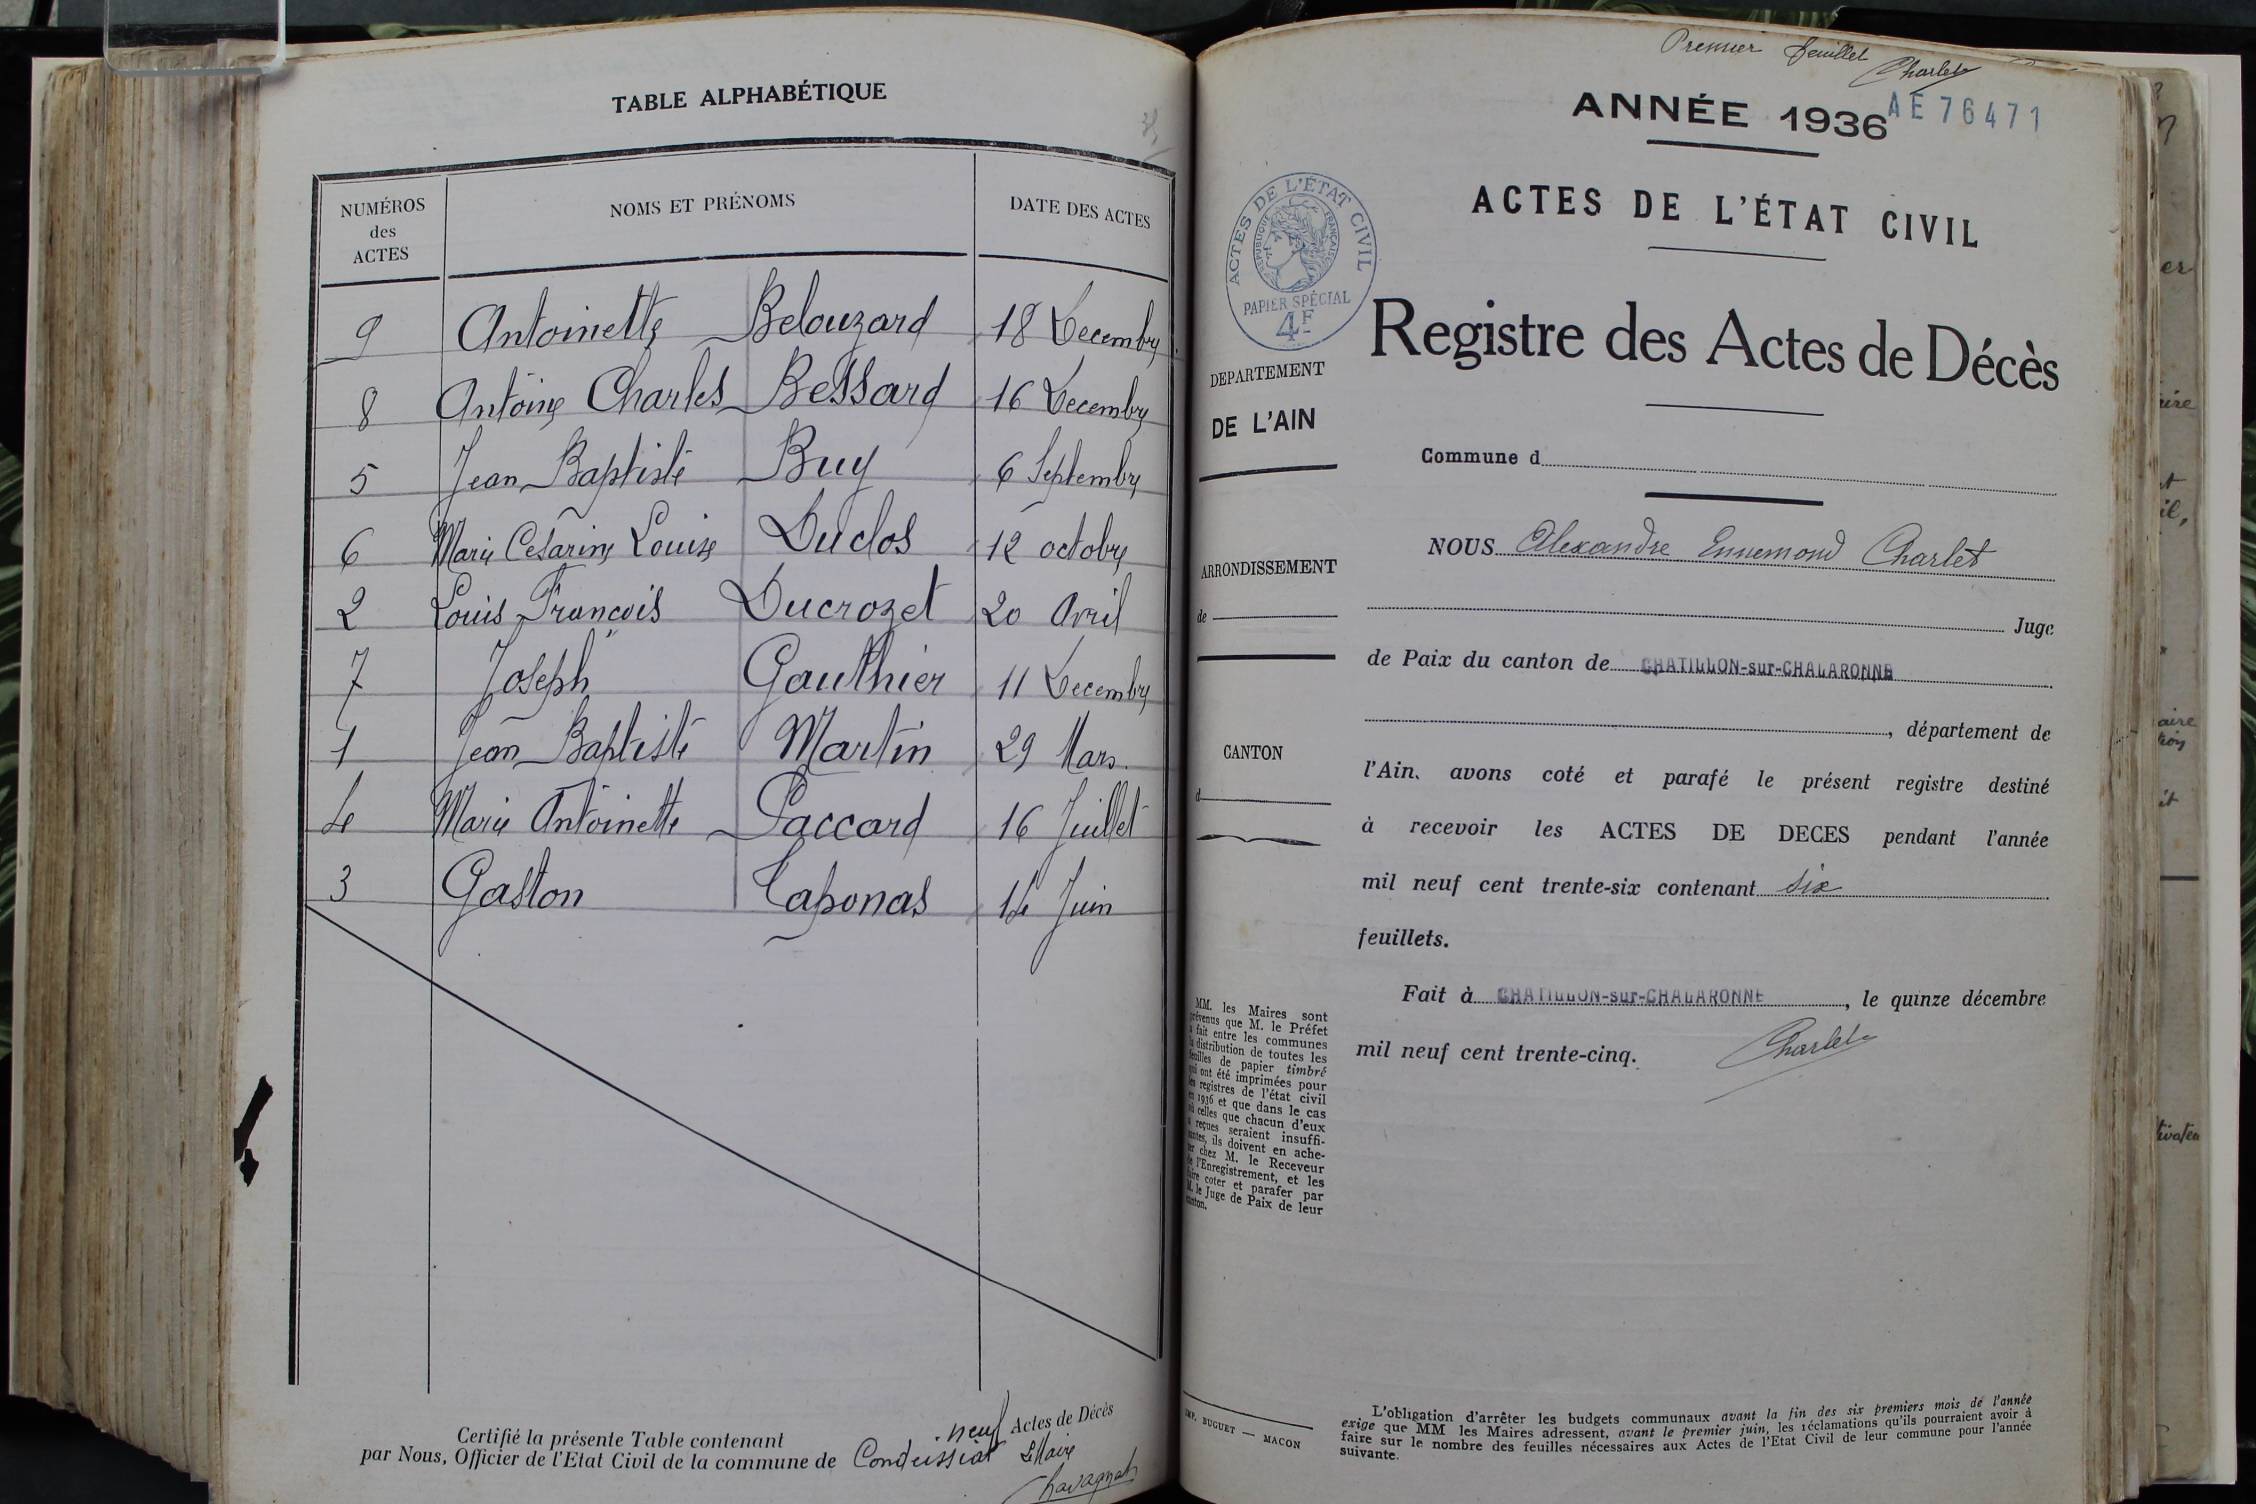 TABLE ALPHABÉTIQUE
NUMÉROS des ACTES NOMS ET PRÉNOMS DATE DES ACTES
9 Antoinette Belouzard 18 Decembre
8 Antoine Charles Bessard 16 Decembre
5 Jean Baptiste Buy 6 Septembre
6 Marie Cesarine Louise Duclos 12 octobre
2 Louis François Ducrozet 20 Avril
7 Joseph Gauthier 11 Decembre
1 Jean Baptiste Martin 29 Mars
4 Marie Antoinette Paccard 16 Juillet
3 Gaston Taponas 14 Juin
Certifié la présente Table contenant neuf Actes de Décès
par Nous, Officier de l'Etat Civil de la commune de Condeissiat Le Maire
Chavagnat
Premier feuillet
Charlet
ANNÉE 1936 AE 76471
ACTES DE L'ÉTAT CIVIL
ACTES DE L'ÉTAT CIVIL
RÉPUBLIQUE FRANÇAISE
PAPIER SPÉCIAL
4F
Registre des Actes de Décès
DEPARTEMENT
DE L'AIN
Commune d
NOUS Alexandre Ennemond Charlet
ARRONDISSEMENT
de
Juge
de Paix du canton de CHATILLON-sur-CHALARONNE
, département de
CANTON
d
l'Ain, avons coté et parafé le présent registre destiné
à recevoir les ACTES DE DECES pendant l'année
mil neuf cent trente-six contenant six
feuillets.
Fait à CHATILLON-sur-CHALARONNE, le quinze décembre
mil neuf cent trente-cinq. Charlet
MM. les Maires sont
prévenus que M. le Préfet
a fait entre les communes
la distribution de toutes les
feuilles de papier timbré
qui ont été imprimées pour
les registres de l'état civil
en 1936 et que dans le cas
où celles que chacun d'eux
a reçues seraient insuffi-
santes, ils doivent en ache-
ter chez M. le Receveur
de l'Enregistrement, et les
faire coter et parafer par
M. le Juge de Paix de leur
canton.
IMP. BUGUET — MACON
L'obligation d'arrêter les budgets communaux avant la fin des six premiers mois de l'année
exige que MM les Maires adressent, avant le premier juin, les réclamations qu'ils pourraient avoir à
faire sur le nombre des feuilles nécessaires aux Actes de l'Etat Civil de leur commune pour l'année
suivante.